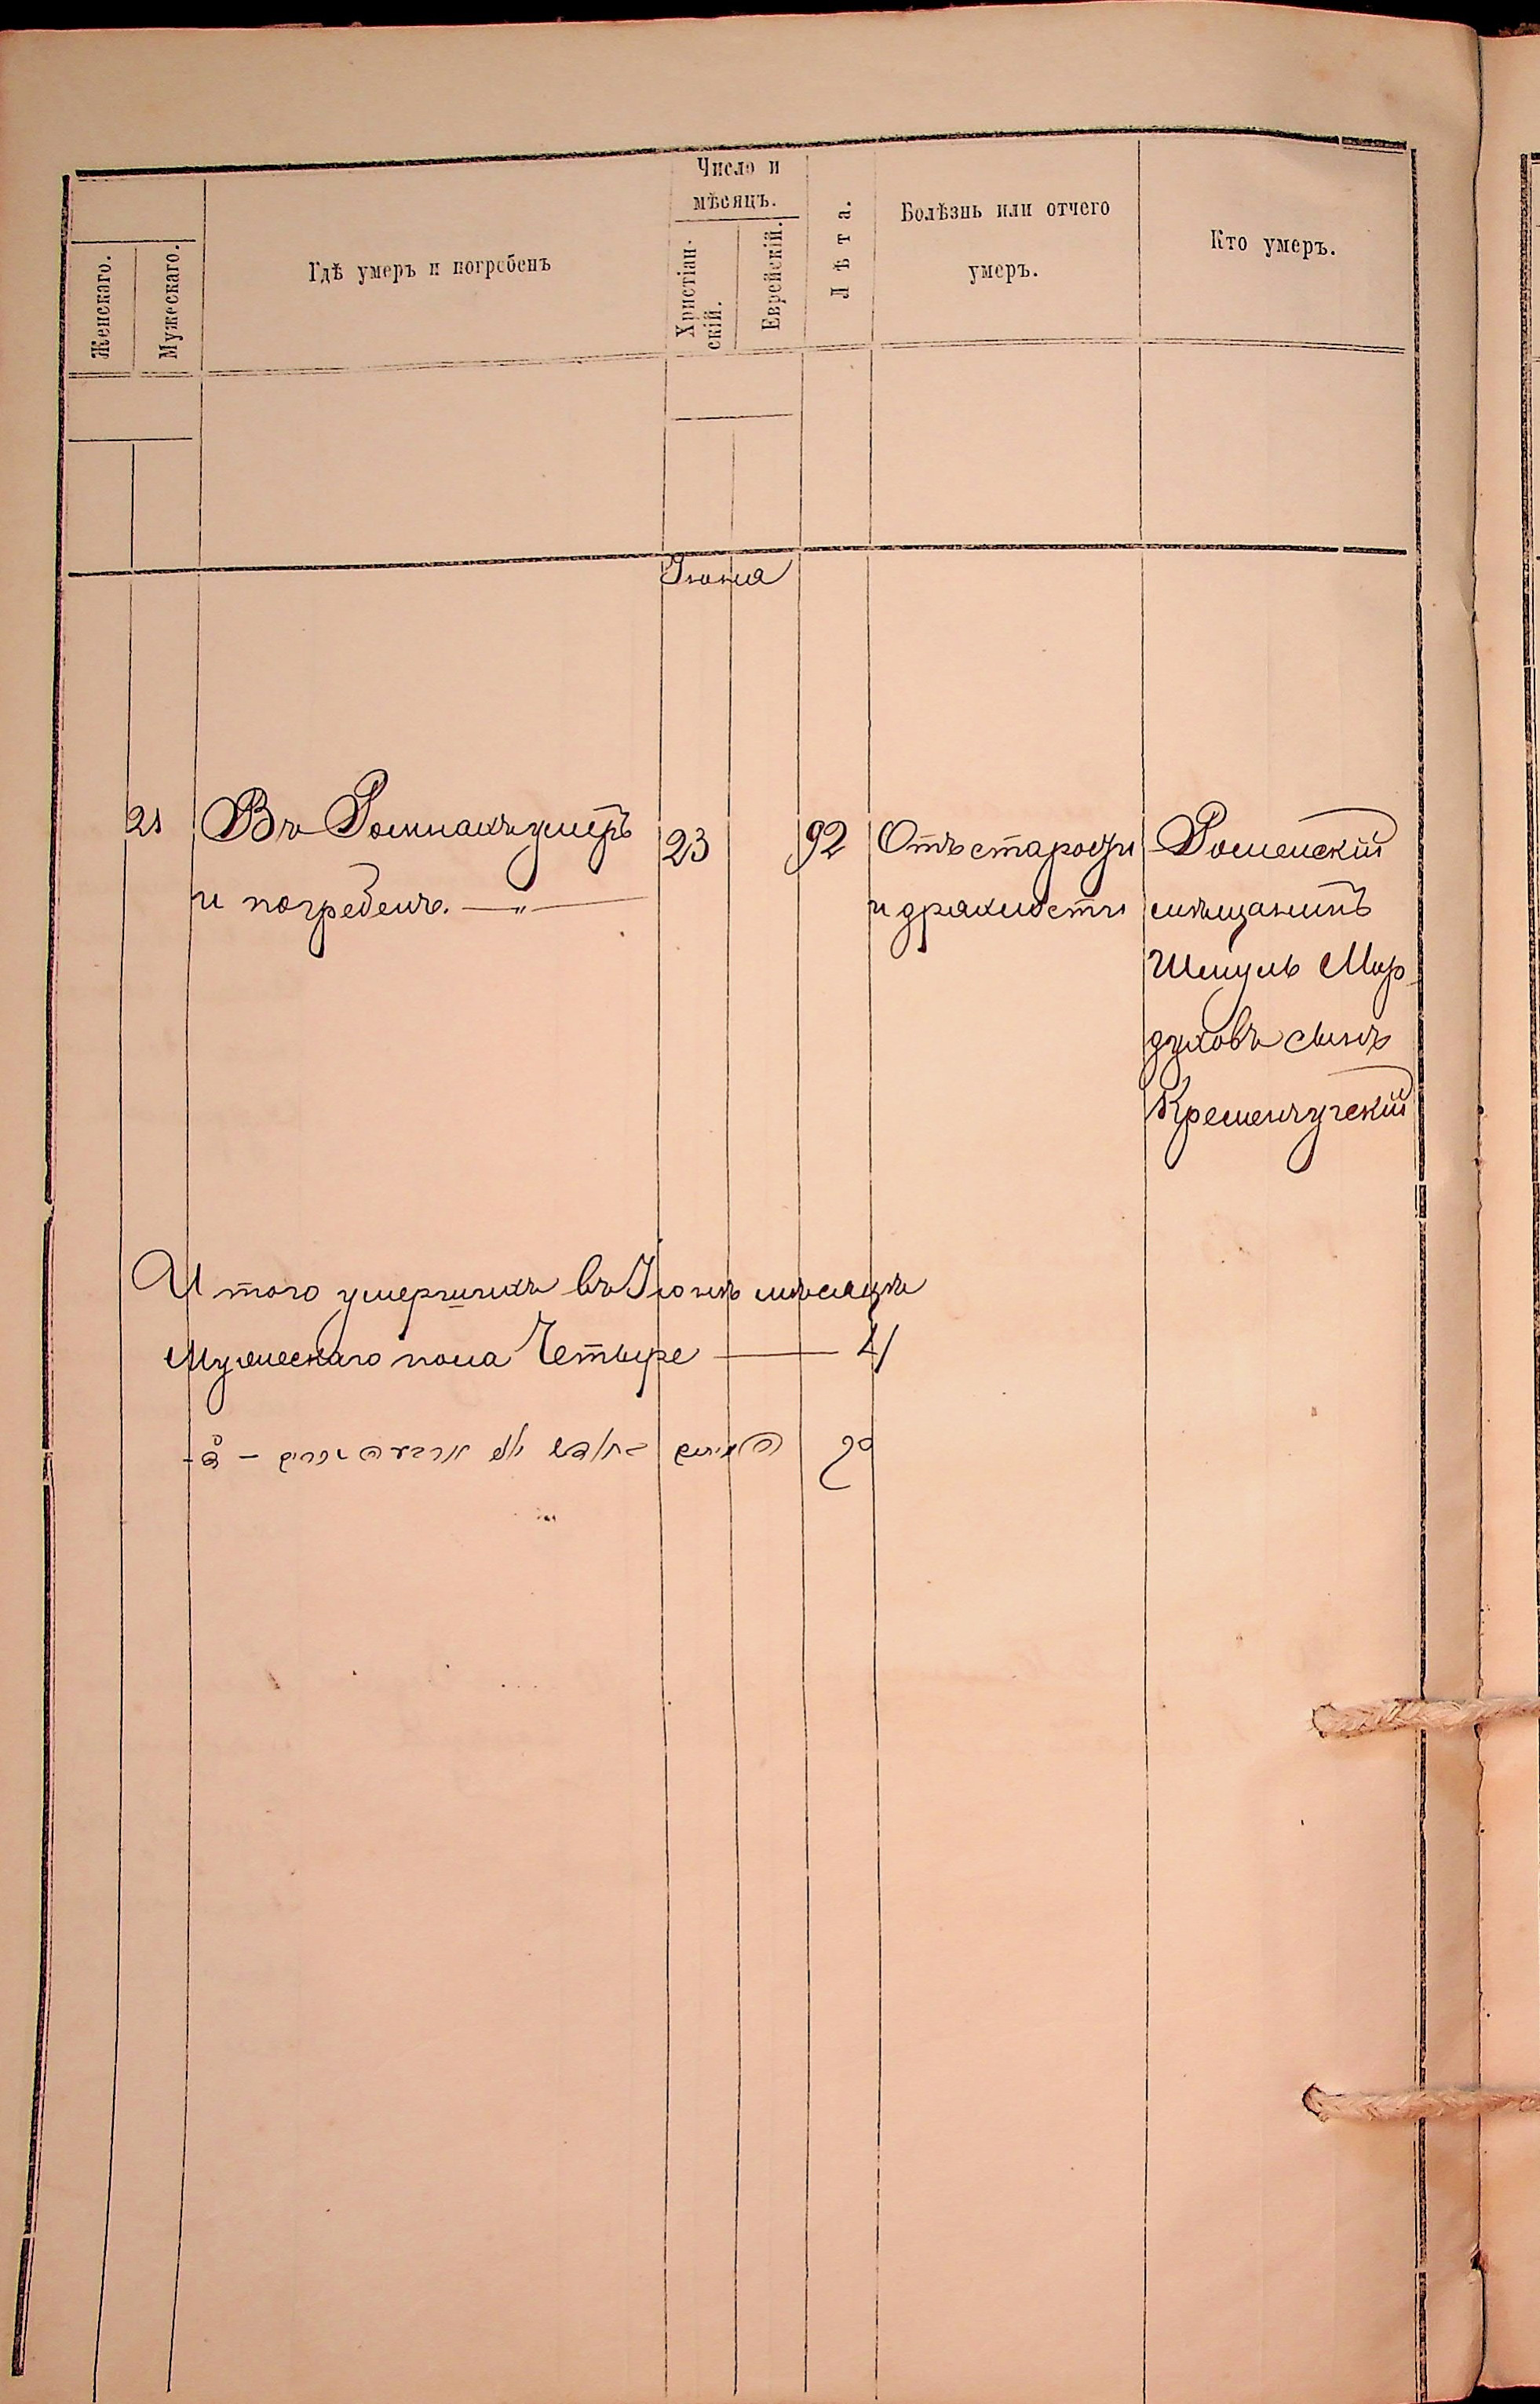 Женскаго.
Мужескаго.
Гдѣ умеръ и погребенъ
Число и
мѣсяцъ.
Христіан-
скій.
Еврейскій.
Лѣта.
Болѣзнь или отчего
умеръ.
Кто умеръ.
Іюня
21
Въ Ромнахъ умеръ
и погребенъ. — „ —
23
92
Отъ старости
и дряхлости
Роменскій
мѣщанинъ
Шмуль Мор-
духовъ сынъ
Кременчугскій
И того умершихъ въ Іюнѣ мѣсяцѣ
Мужескаго пола Четыре — 4